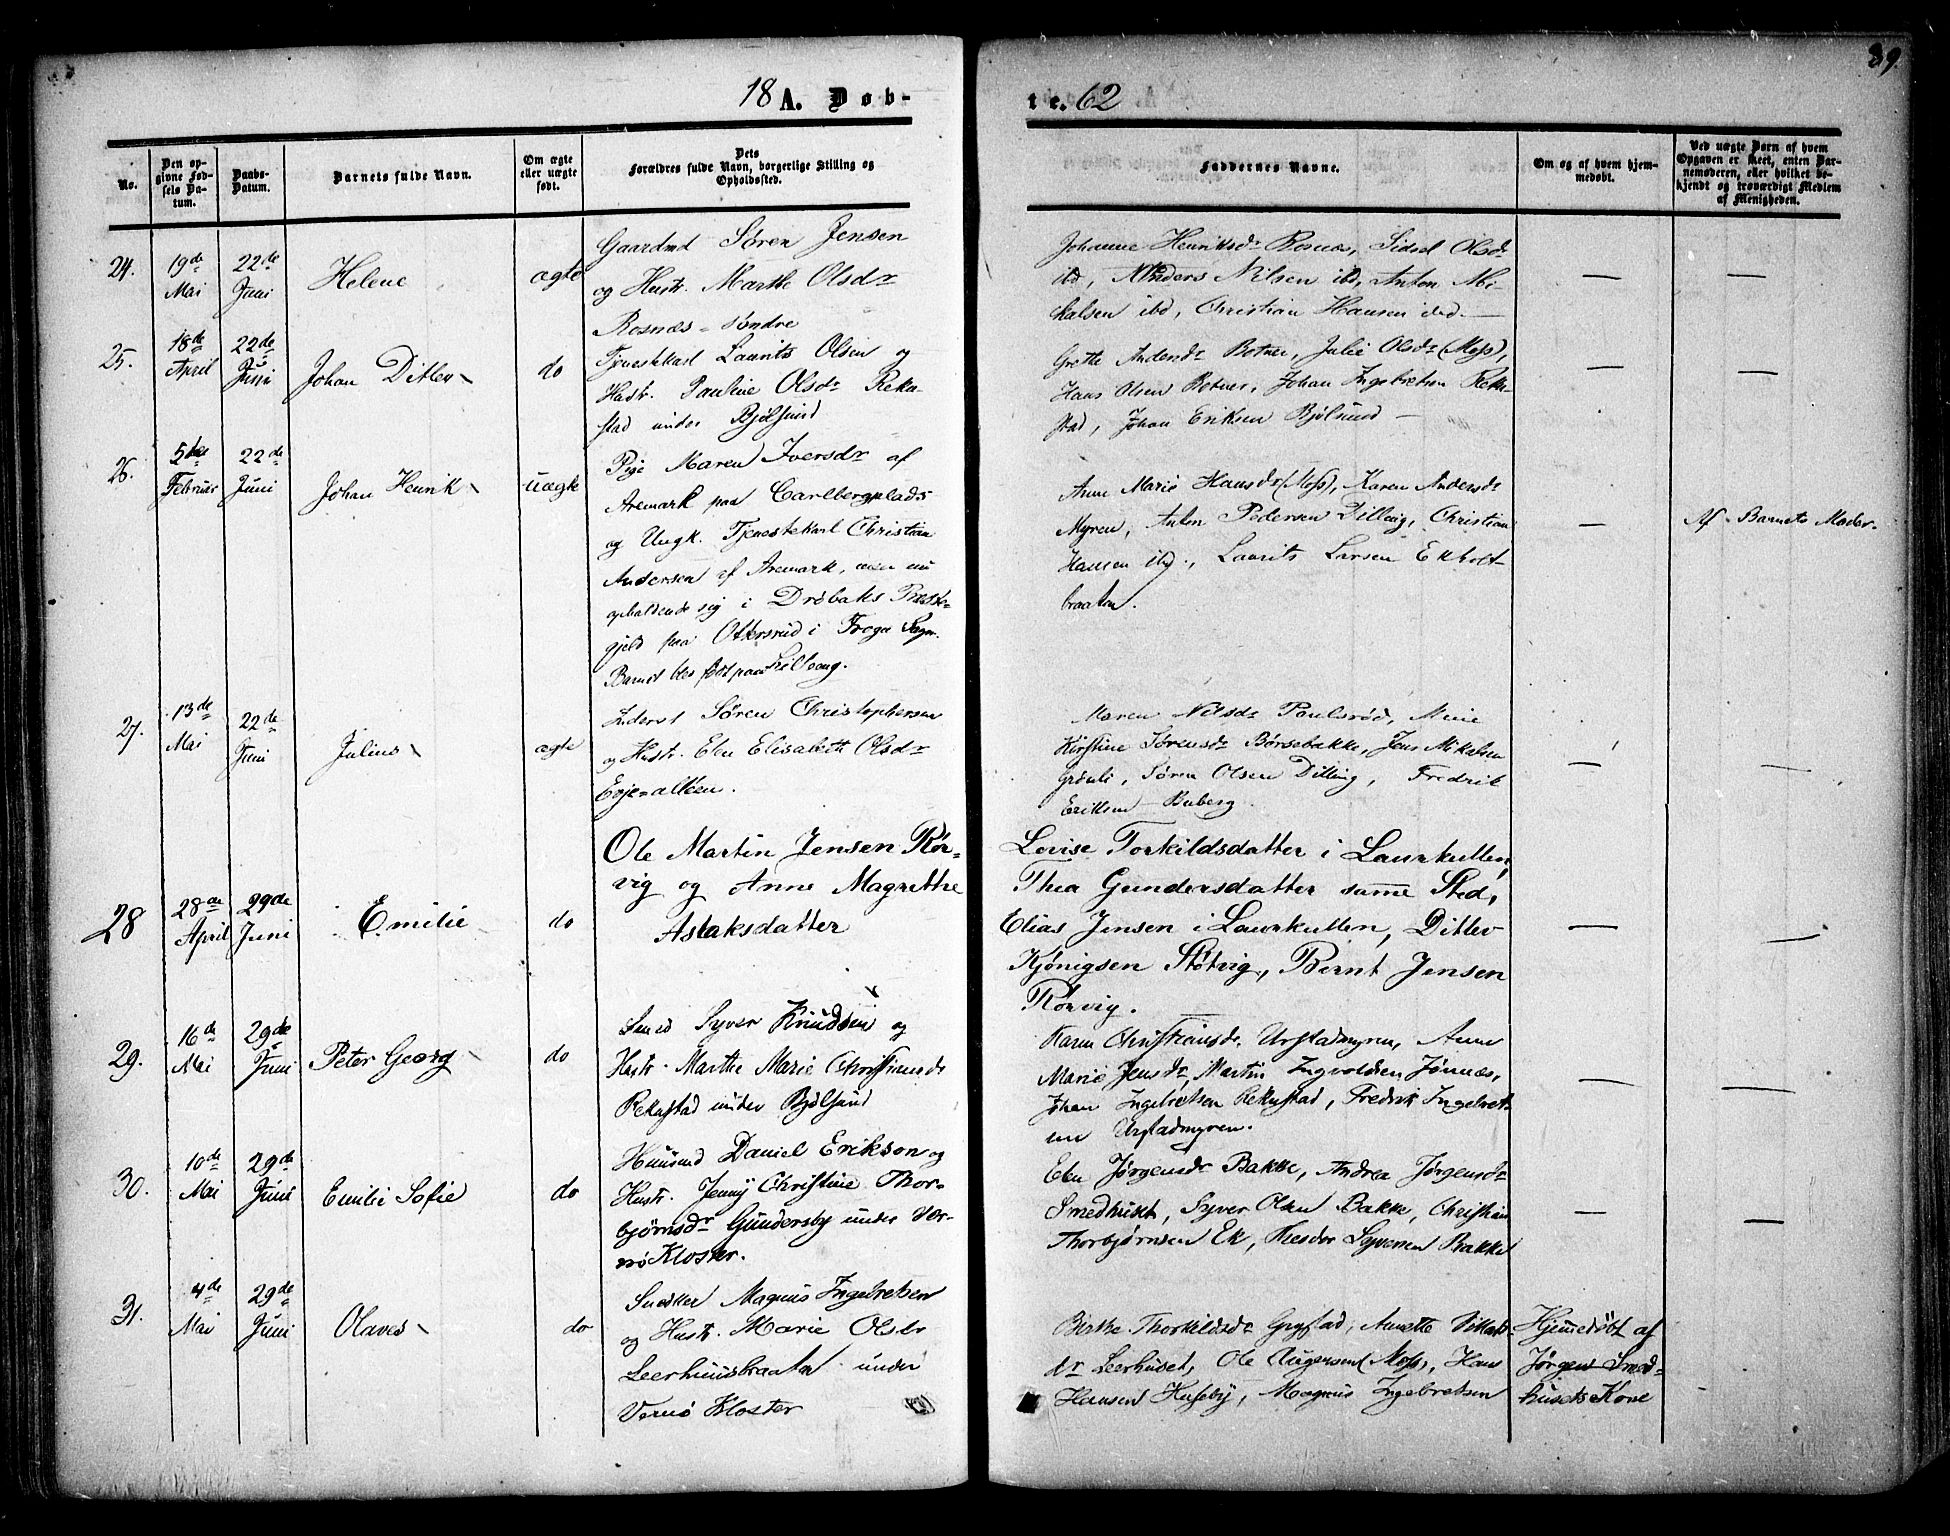 89.
18 A. Døb-
te. 62
No.
Den op-
givne Fød-
sels Da-
tum.
Daabs-
Datum.
Barnets fulde Navn.
Om ægte
eller uægte
født.
Dets
Forældres fulde Navn, borgerlige Stilling og
Opholdssted.
Faddernes Navne.
Om og af hvem hjem-
medøbt.
Ved uægte Børn af hvem
Opgaven er skeet, enten Bar-
nemoderen, eller hvilket be-
kjendt og troværdigt Medlem
af Menigheden.
24.
19de
Mai
22de
Juni
Helene
ægte
Gaardmd Søren Jensen
og Hustr. Marthe Olsdr
Rosnæs - søndre
Johanne Henriksdr Rosnæs, Sidsel Olsdr
ibd, Anders Nilsen ibd, Anton Mi-
kalsen ibd, Christian Hansen ibd. —
—
—
25.
18de
April
22de
Juni
Johan Ditlev
do
Tjenestekarl Laurits Olsen og
Hustr. Pauline Olsdr Reka-
stad under Bjølsund
Grethe Andersdr Botner, Julie Olsdr (Moss),
Hans Olsen Botner, Johan Ingebretsen Reka-
stad, Johan Eriksen Bjølsund —
—
—
26.
5te
Februar
22de
Juni
Johan Henrik
uægte
Pige Maren Iversdr af
Aremark paa Carlbergplads
og Ungk. Tjenestekarl Christian
Andersen af Aremark, men nu
opholdende sig i Drøbaks Præste-
gjeld paa Ottersrud i Frogn Sogn.
Barnet blev født paa
Anne Marie Hansdr (Moss), Karen Andersdr
Myren, Anton Pedersen Dilling, Christian
Hansen ibd., Laurits Larsen Ekholt-
braaten.
—
Af Barnets Moder.
27.
13de
Mai
22de
Juni
Julius
ægte
Inderst Søren Christophersen
og Hustr. Elen Elisabeth Olsdr
Evje-alleen.
Maren Nilsdr Paulsrød, Mine
Kirstine Sørensdr Børsebakke, Jens Mikalsen
Grønli, Søren Olsen Dilling, Fredrik
Eriksen Buberg.
—
—
28
28de
April
29de
Juni
Emilie
do
Ole Martin Jensen Rør-
vig og Anne Magrethe
Aslaksdatter
Lovise Torkildsdatter i Laurkullen,
Thea Gundersdatter samme Sted,
Elias Jensen i Laurkullen, Ditlev
Kjønigsen Støtvig, Bernt Jensen
Rørvig.
—
—
29.
16de
Mai
29de
Juni
Peter Georg
do
Smed Syver Knudsen og
Hustr. Marthe Marie Christiansdr
Rekustad under Bjølsund
Karen Christiansdr. Urstadmyren, Anne
Marie Jensdr, Martin Ingvoldsen Jønnæs,
Johan Ingebretsen Rekustad, Fredrik Ingebret-
sen Urstadmyren.
—
—
30.
10de
Mai
29de
Juni
Emilie Sofie
do
Huusmd Daniel Erikson og
Hustr. Jenny Christine Thor-
bjørnsdr Gundersby under Ver-
nø Kloster.
Elen Jørgensdr Bakke, Andrea Jørgensdr
Smedhuset, Syver Olsen Bakke, Christian
Thorbjørnsen Ek, Syversen Bakke
—
—
31.
4de
Mai
29de
Juni
Olaves
do
Snedker Magnus Ingebretsen
og Hustr. Marie Olsdr
Leerhuusbraaten under
Vernø Kloster
Birthe Thorkildsdr Grystad, Annette
dr Leerhuset, Ole Aagersen (Moss), Hans
Hansen Huseby, Magnus Ingebretsen
Hjemmedøbt af
Jørgen Smed-
husets Kone